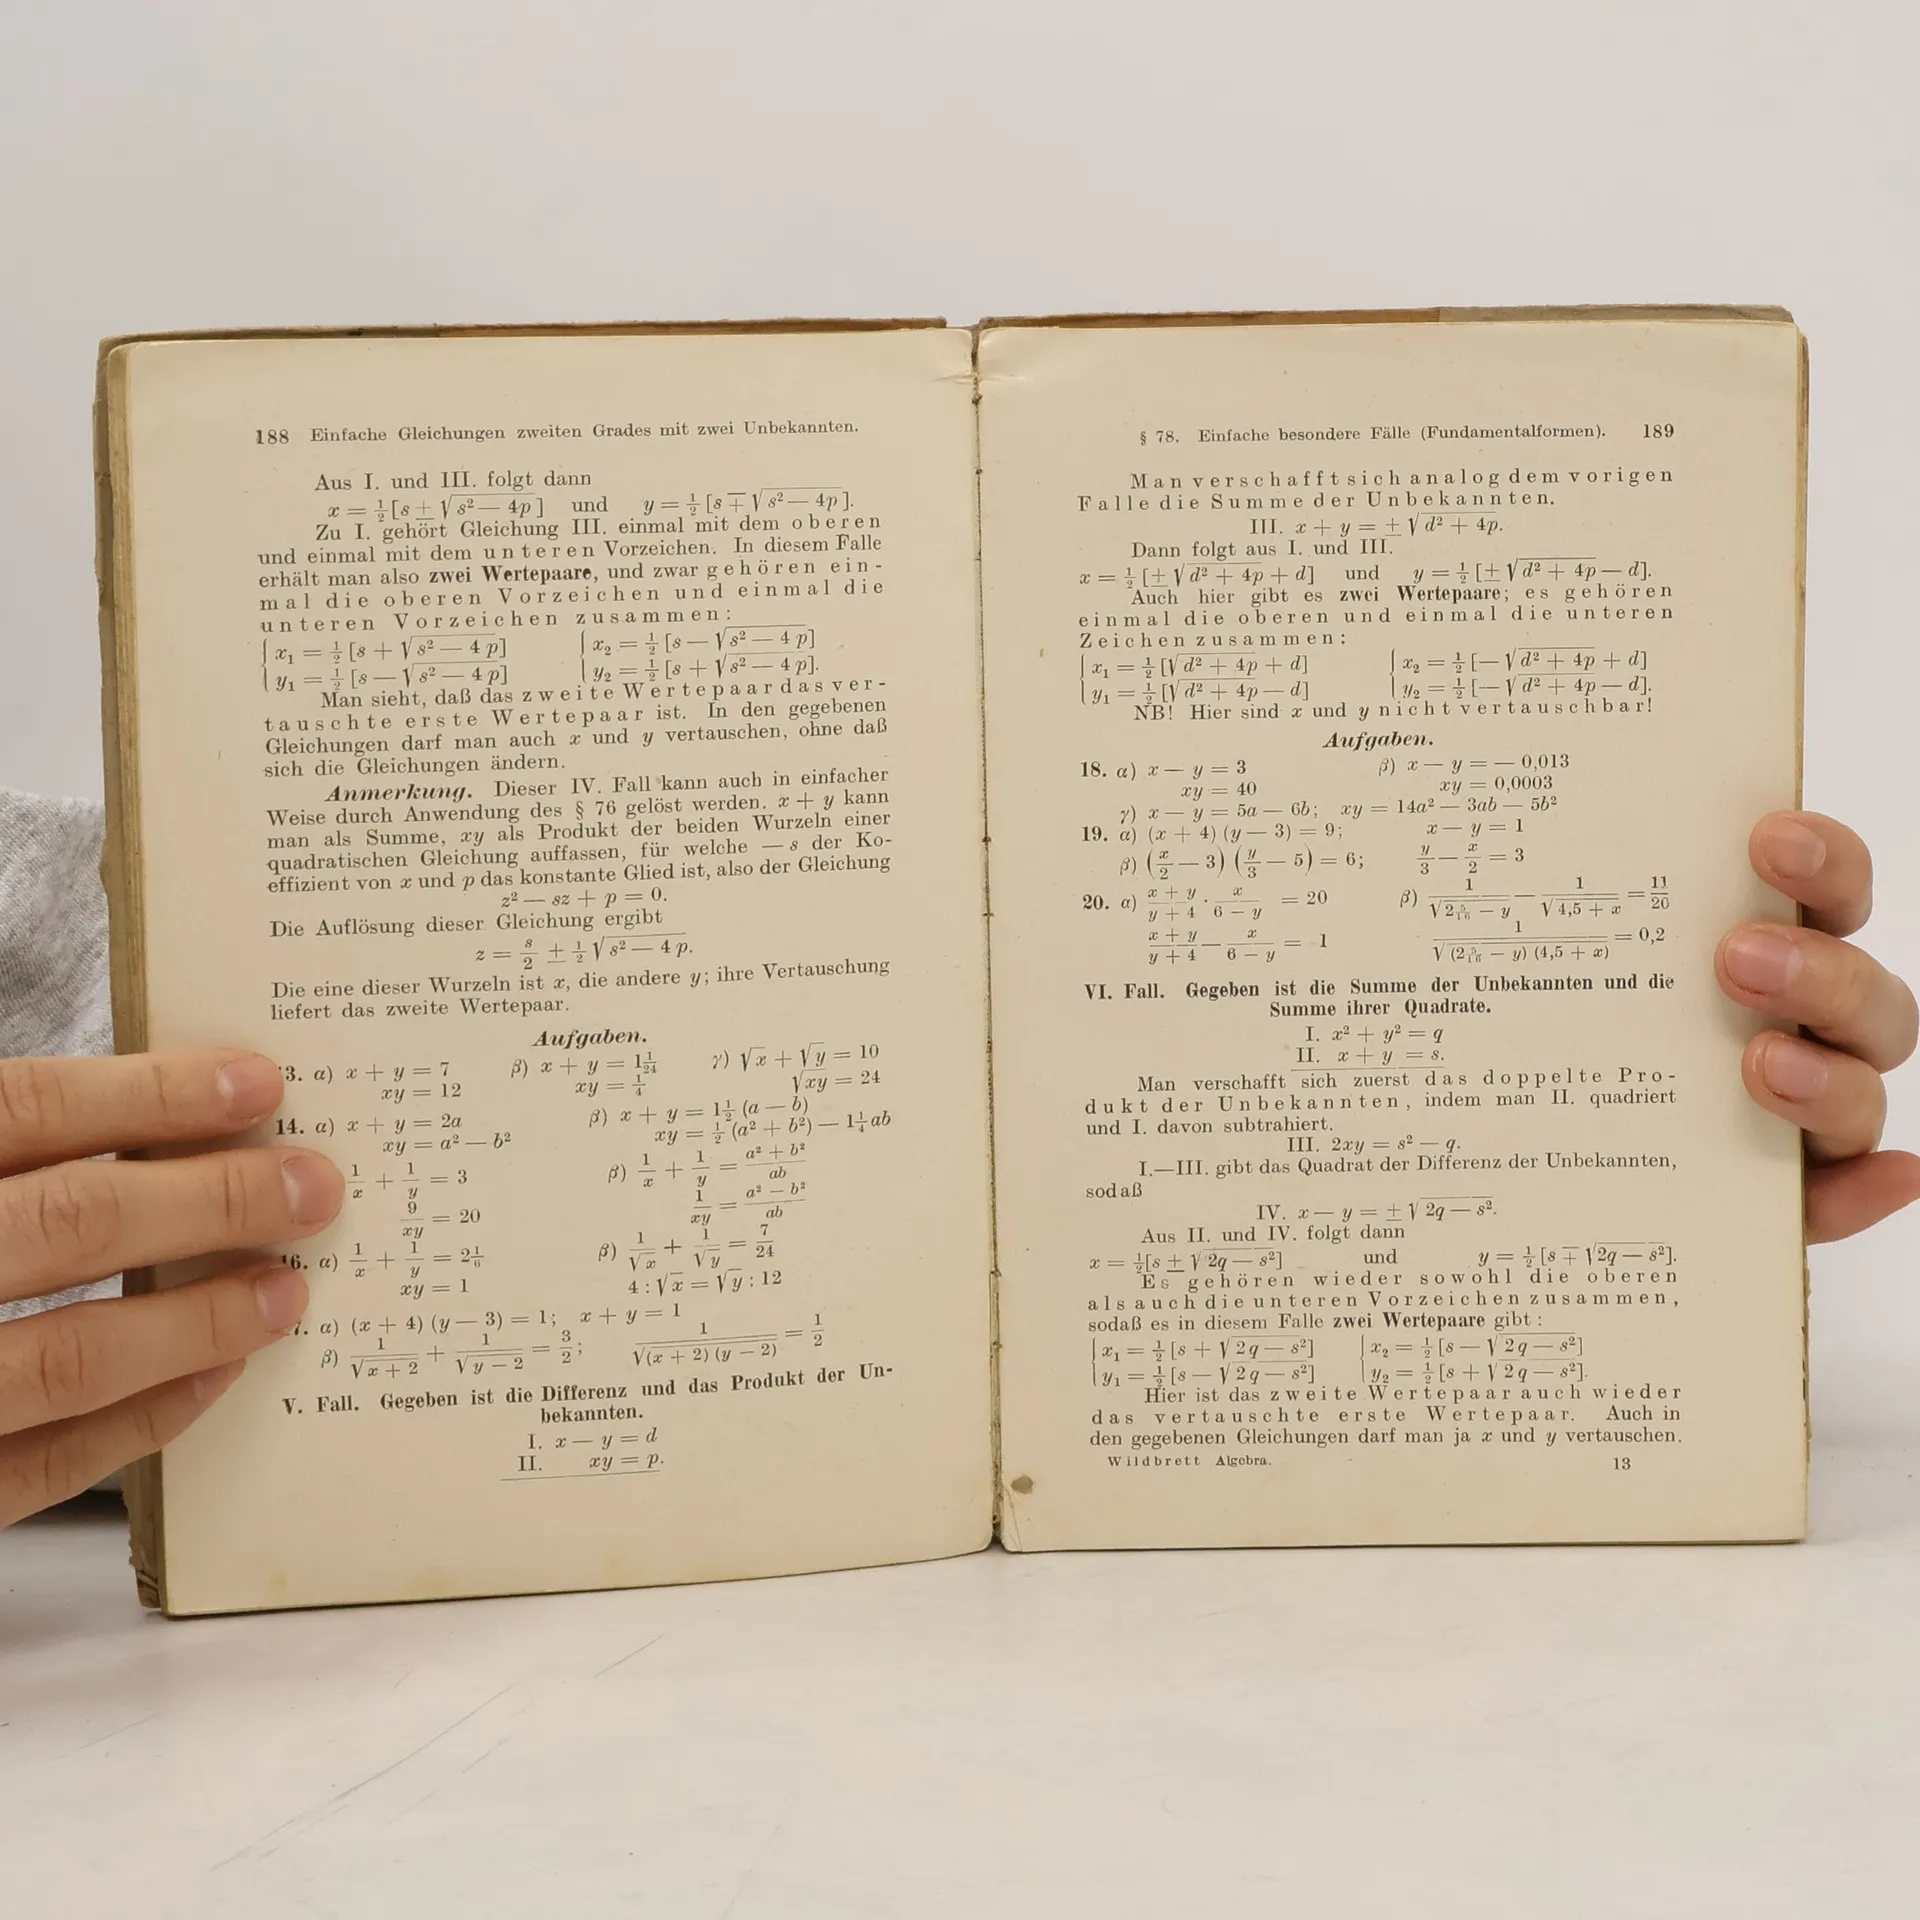 188 Einfache Gleichungen zweiten Grades mit zwei Unbekannten.
Aus I. und III. folgt dann
x = ½ [s ± √(s² — 4p)] und y = ½ [s ∓ √(s² — 4p)].
Zu I. gehört Gleichung III. einmal mit dem oberen
und einmal mit dem unteren Vorzeichen. In diesem Falle
erhält man also zwei Wertepaare, und zwar gehören ein-
mal die oberen Vorzeichen und einmal die
unteren Vorzeichen zusammen:
x₁ = ½ [s + √(s² — 4 p)] x₂ = ½ [s — √(s² — 4 p)]
y₁ = ½ [s — √(s² — 4 p)] y₂ = ½ [s + √(s² — 4 p)].
Man sieht, daß das zweite Wertepaar das ver-
tauschte erste Wertepaar ist. In den gegebenen
Gleichungen darf man auch x und y vertauschen, ohne daß
sich die Gleichungen ändern.
Anmerkung. Dieser IV. Fall kann auch in einfacher
Weise durch Anwendung des § 76 gelöst werden. x + y kann
man als Summe, xy als Produkt der beiden Wurzeln einer
quadratischen Gleichung auffassen, für welche — s der Ko-
effizient von x und p das konstante Glied ist, also der Gleichung
z² — sz + p = 0.
Die Auflösung dieser Gleichung ergibt
z = s/2 ± ½ √(s² — 4 p).
Die eine dieser Wurzeln ist x, die andere y; ihre Vertauschung
liefert das zweite Wertepaar.
Aufgaben.
3. α) x + y = 7 β) x + y = 1 1/24 γ) √x + √y = 10
xy = 12 xy = ¼ √xy = 24
14. α) x + y = 2a β) x + y = 1½ (a — b)
xy = a² — b² xy = ½ (a² + b²) — 1¼ ab
1/x + 1/y = 3 β) 1/x + 1/y = (a² + b²)/ab
9/xy = 20 1/xy = (a² — b²)/ab
16. α) 1/x + 1/y = 2 1/6 β) 1/√x + 1/√y = 7/24
xy = 1 4 : √x = √y : 12
7. α) (x + 4) (y — 3) = 1; x + y = 1
β) 1/√(x + 2) + 1/√(y — 2) = 3/2; 1/√((x + 2) (y — 2)) = 1/2
V. Fall. Gegeben ist die Differenz und das Produkt der Un-
bekannten.
I. x — y = d
II. xy = p.
§ 78. Einfache besondere Fälle (Fundamentalformen). 189
Man verschafft sich analog dem vorigen
Falle die Summe der Unbekannten.
III. x + y = ± √(d² + 4p).
Dann folgt aus I. und III.
x = ½ [± √(d² + 4p) + d] und y = ½ [± √(d² + 4p) — d].
Auch hier gibt es zwei Wertepaare; es gehören
einmal die oberen und einmal die unteren
Zeichen zusammen:
x₁ = ½ [√(d² + 4p) + d] x₂ = ½ [— √(d² + 4p) + d]
y₁ = ½ [√(d² + 4p) — d] y₂ = ½ [— √(d² + 4p) — d].
NB! Hier sind x und y nicht vertauschbar!
Aufgaben.
18. α) x — y = 3 β) x — y = — 0,013
xy = 40 xy = 0,0003
γ) x — y = 5a — 6b; xy = 14a² — 3ab — 5b²
19. α) (x + 4) (y — 3) = 9; x — y = 1
β) (x/2 — 3) (y/3 — 5) = 6; y/3 — x/2 = 3
20. α) (x + y)/(y + 4) · x/(6 — y) = 20 β) 1/√(2 5/16 — y) — 1/√(4,5 + x) = 11/20
(x + y)/(y + 4) — x/(6 — y) = 1 1/√((2 5/16 — y) (4,5 + x)) = 0,2
VI. Fall. Gegeben ist die Summe der Unbekannten und die
Summe ihrer Quadrate.
I. x² + y² = q
II. x + y = s.
Man verschafft sich zuerst das doppelte Pro-
dukt der Unbekannten, indem man II. quadriert
und I. davon subtrahiert.
III. 2xy = s² — q.
I.—III. gibt das Quadrat der Differenz der Unbekannten,
sodaß
IV. x — y = ± √(2q — s²).
Aus II. und IV. folgt dann
x = ½[s ± √(2q — s²)] und y = ½ [s ∓ √(2q — s²)].
Es gehören wieder sowohl die oberen
als auch die unteren Vorzeichen zusammen,
sodaß es in diesem Falle zwei Wertepaare gibt:
x₁ = ½ [s + √(2q — s²)] x₂ = ½ [s — √(2q — s²)]
y₁ = ½ [s — √(2q — s²)] y₂ = ½ [s + √(2q — s²)].
Hier ist das zweite Wertepaar auch wieder
das vertauschte erste Wertepaar. Auch in
den gegebenen Gleichungen darf man ja x und y vertauschen.
Wildbrett Algebra. 13